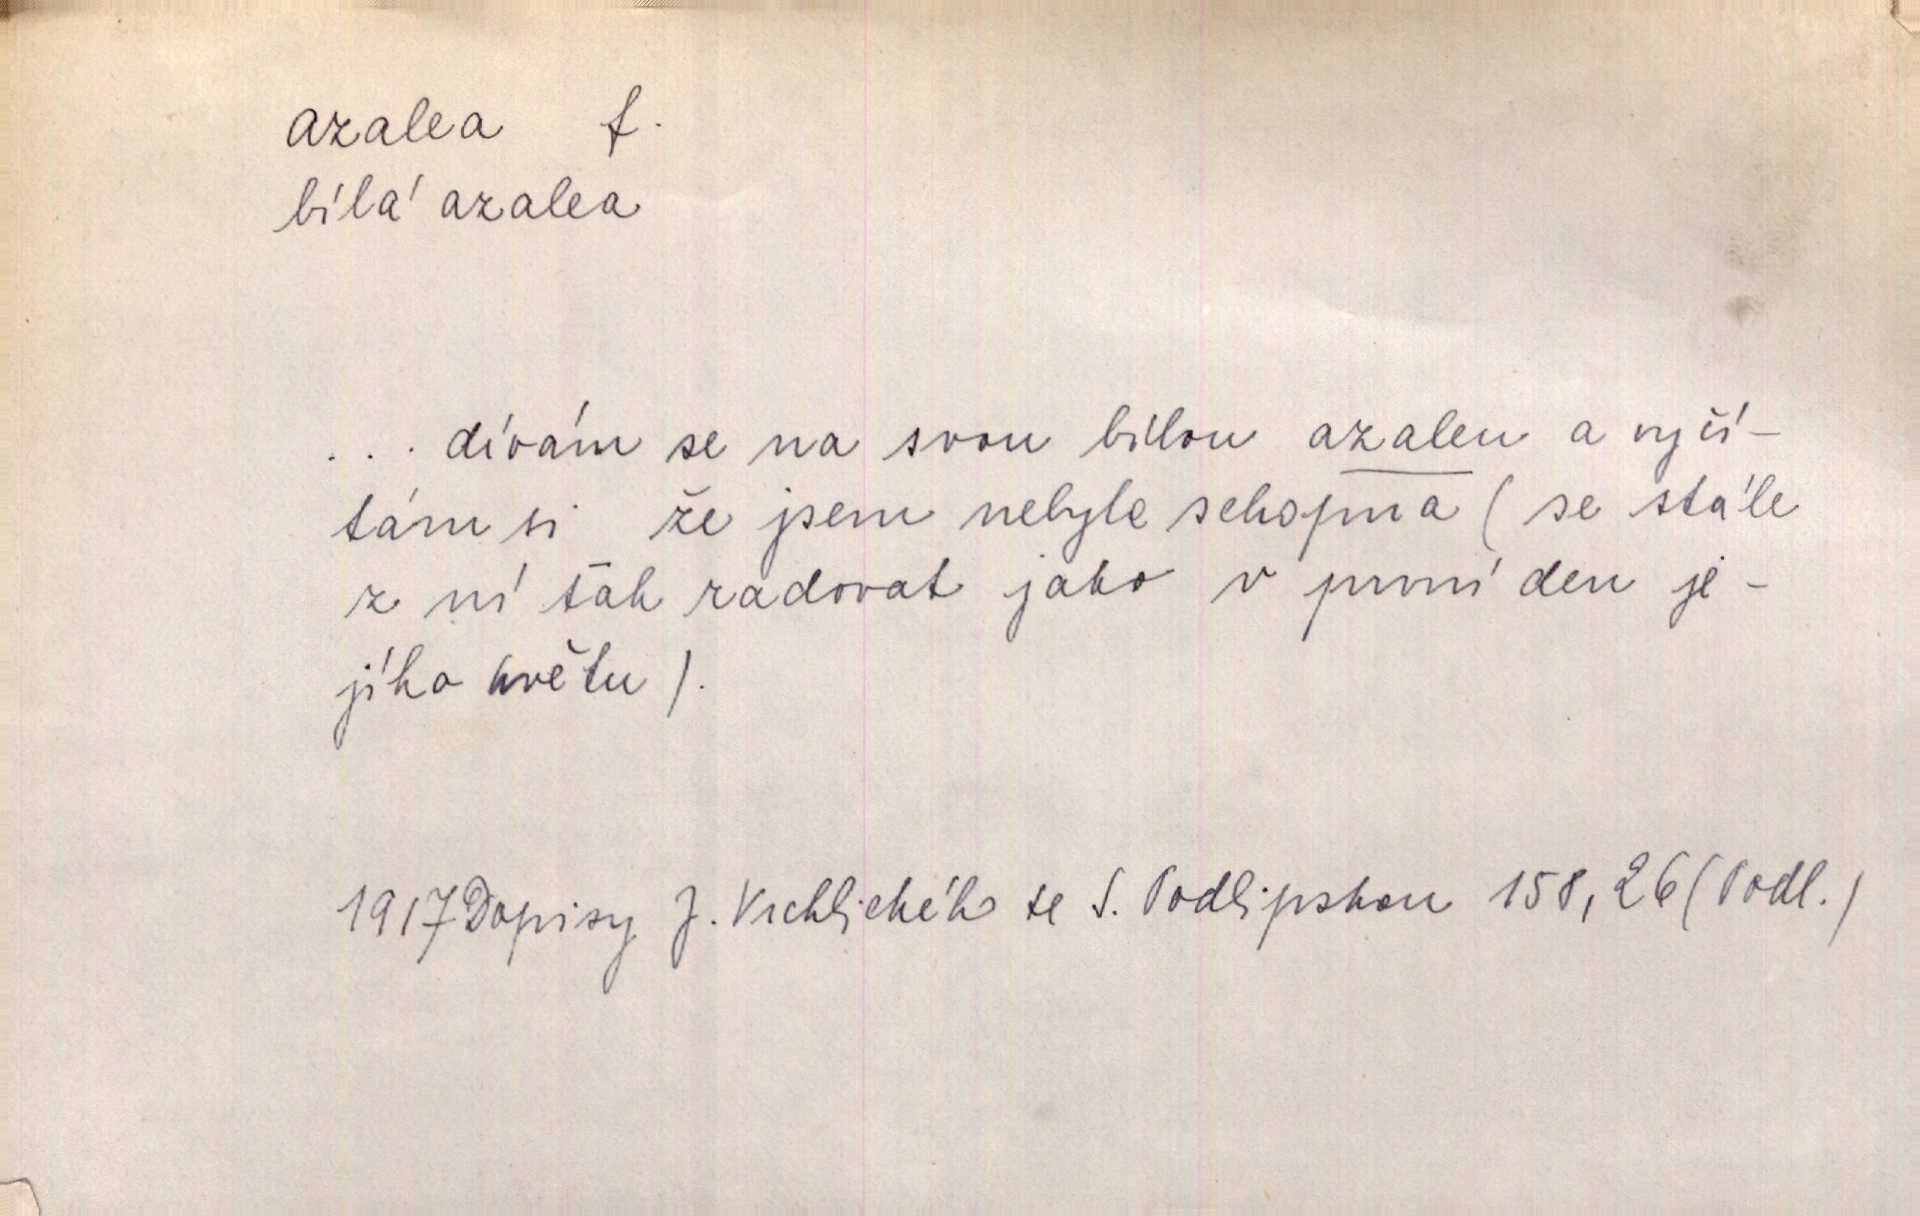 azalea f.
bílá azalea
... dívám se na svou bílou azaleu a vyčí-
tám si že jsem nebyla schopna (se stále
z ní tak radovat jako v první den je-
jího květu).
1917 Dopisy J. Vrchlického se S. Podlipskou 158, 26 (Podl.)